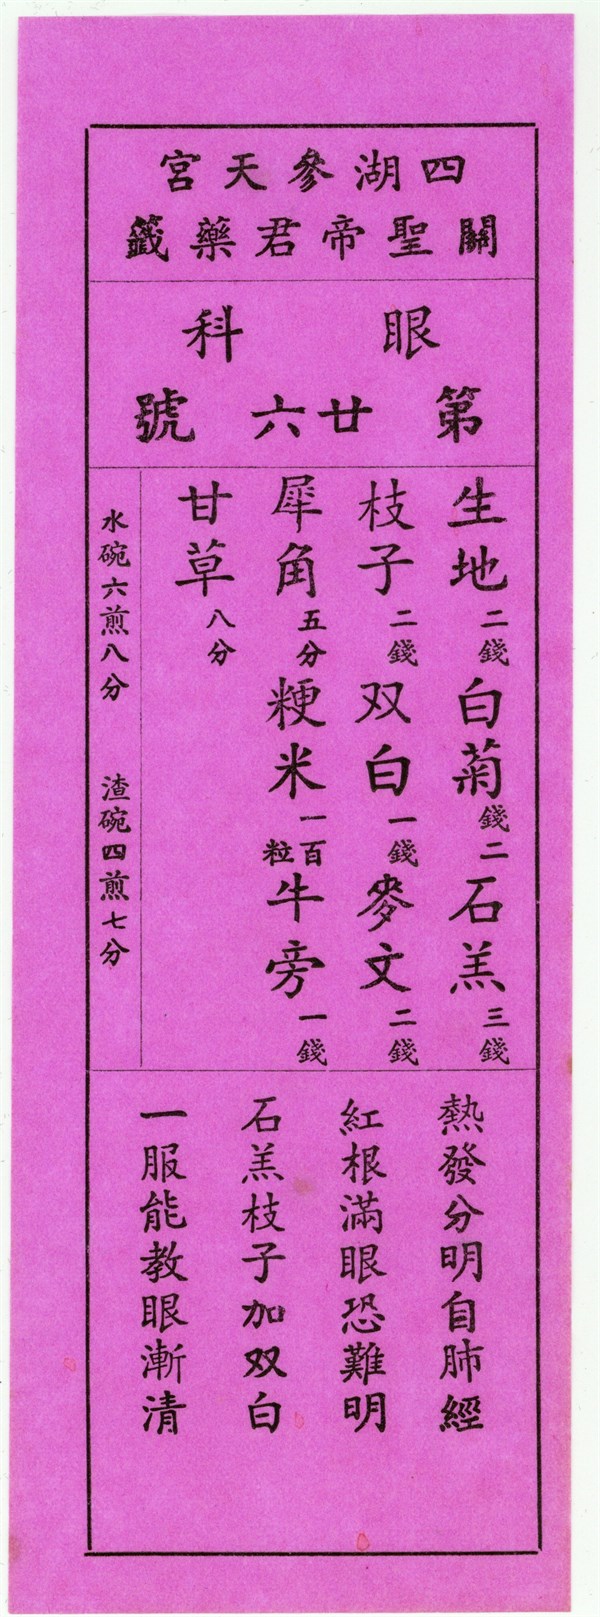 四湖參天宮
關聖帝君藥籤
眼科
第廿六號
生地二錢 白菊錢二 石羔三錢
枝子二錢 双白一錢 麥文二錢
犀角五分 粳米一百粒 牛旁一錢
甘草八分
水碗六煎八分 渣碗四煎七分
熱發分明自肺經
紅根滿眼恐難明
石羔枝子加双白
一服能教眼漸清